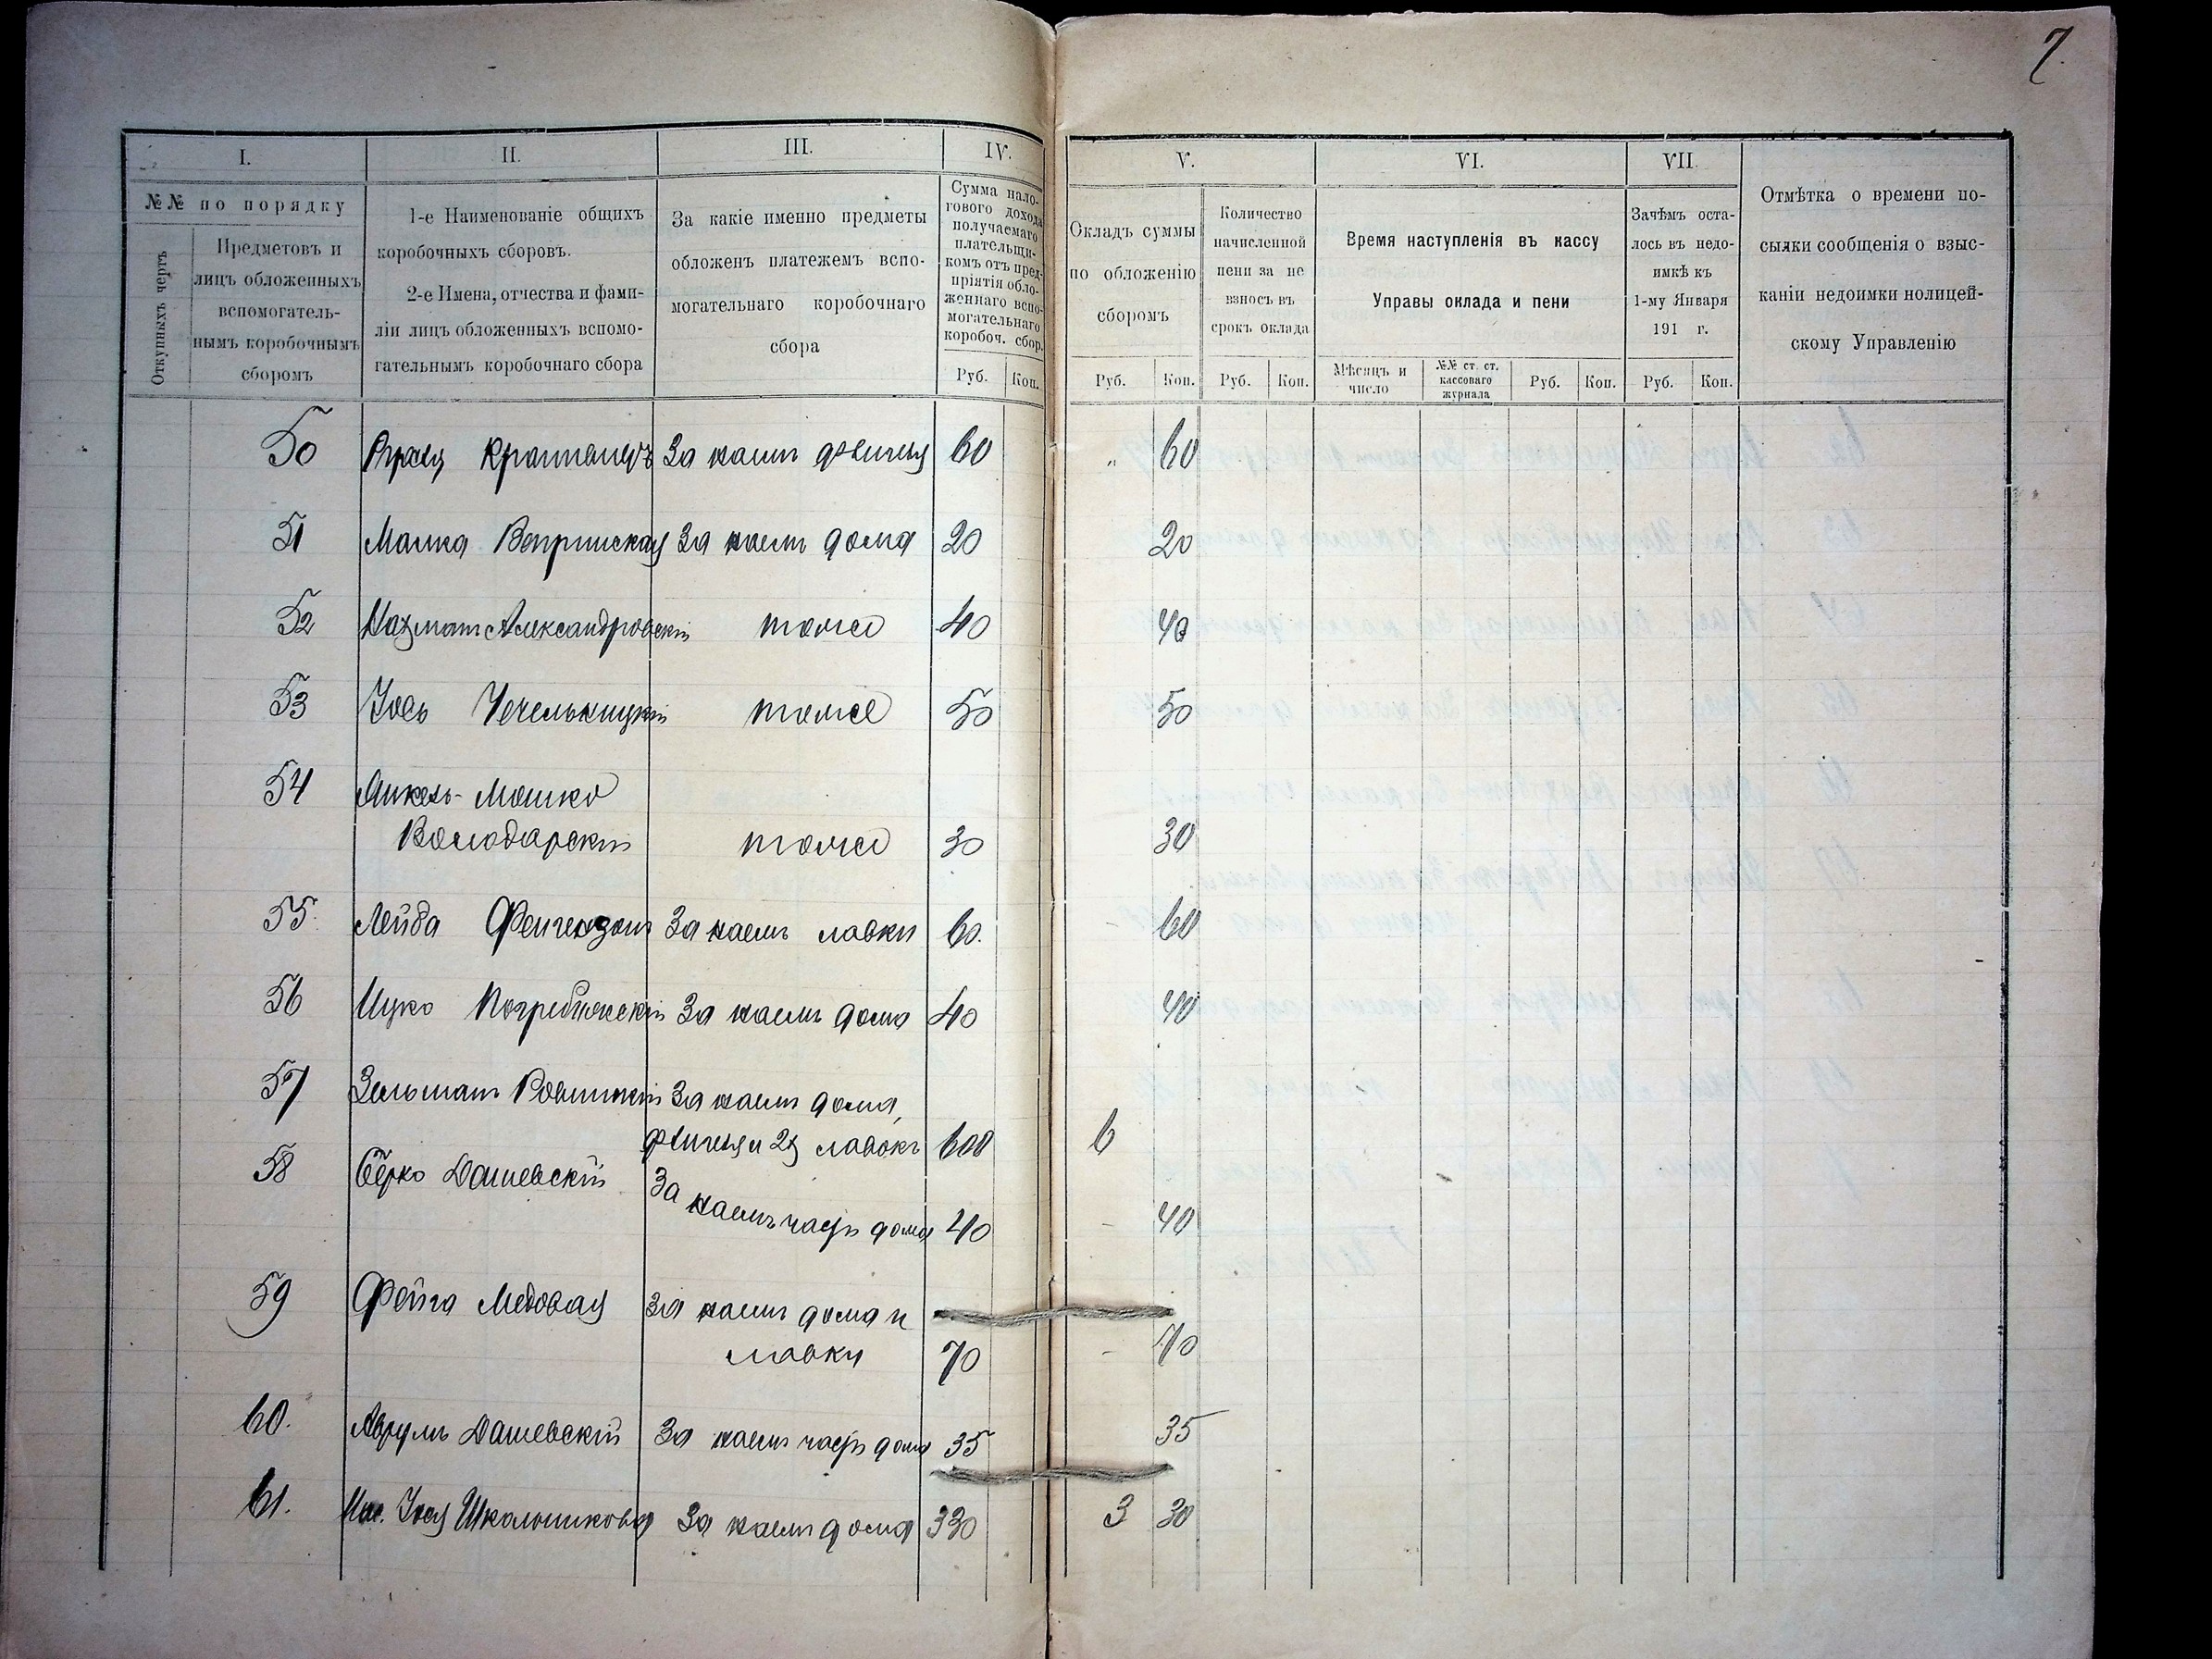 7.
I.
II.
III.
IV.
V.
VI.
VII.
№№ по порядку
Откупныхъ чертъ
Предметовъ и
лицъ обложенныхъ
вспомогатель-
нымъ коробочнымъ
сборомъ
1-е Наименованіе общихъ
коробочныхъ сборовъ.
2-е Имена, отчества и фами-
ліи лицъ обложенныхъ вспомо-
гательнымъ коробочнаго сбора
За какіе именно предметы
обложенъ платежемъ вспо-
могательнаго коробочнаго
сбора
Сумма нало-
гового дохода
получаемаго
плательщи-
комъ отъ пред-
пріятія обло-
женнаго вспо-
могательнаго
коробоч. сбор.
Руб. Коп.
Окладъ суммы
по обложенію
сборомъ
Руб. Коп.
Количество
начисленной
пени за не
взносъ въ
срокъ оклада
Руб. Коп.
Время наступленія въ кассу
Управы оклада и пени
Мѣсяцъ и
число
№№ ст. ст.
кассоваго
журнала
Руб. Коп.
Зачѣмъ оста-
лось въ недо-
имкѣ къ
1-му Января
191 г.
Руб. Коп.
Отмѣтка о времени по-
сылки сообщенія о взыс-
каніи недоимки полицей-
скому Управленію
50 За наемъ 60 " 60
51 Малка Вепринская За наемъ дома 20 20
52 Нахманъ Александровскій тоже 40 40
53 Іось Чечельницкій тоже 50 50
54 Янкель-Мошко
Володарскій тоже 30 30
55. Лейба За наемъ лавки 60. - 60
56 Ицко Погребижскій За наемъ дома 40 40
57 Зельманъ За наемъ дома,
флигеля и 2х лавокъ 600 6
58 Берко Дашевскій За
наемъ часть дома 40 - 40
59 Фейга Медовая За наемъ дома и
лавки 70 - 70
60. Аврумъ Дашевскій За наемъ часть дома 35 35
61. Школьникова За наемъ дома 330 3 30